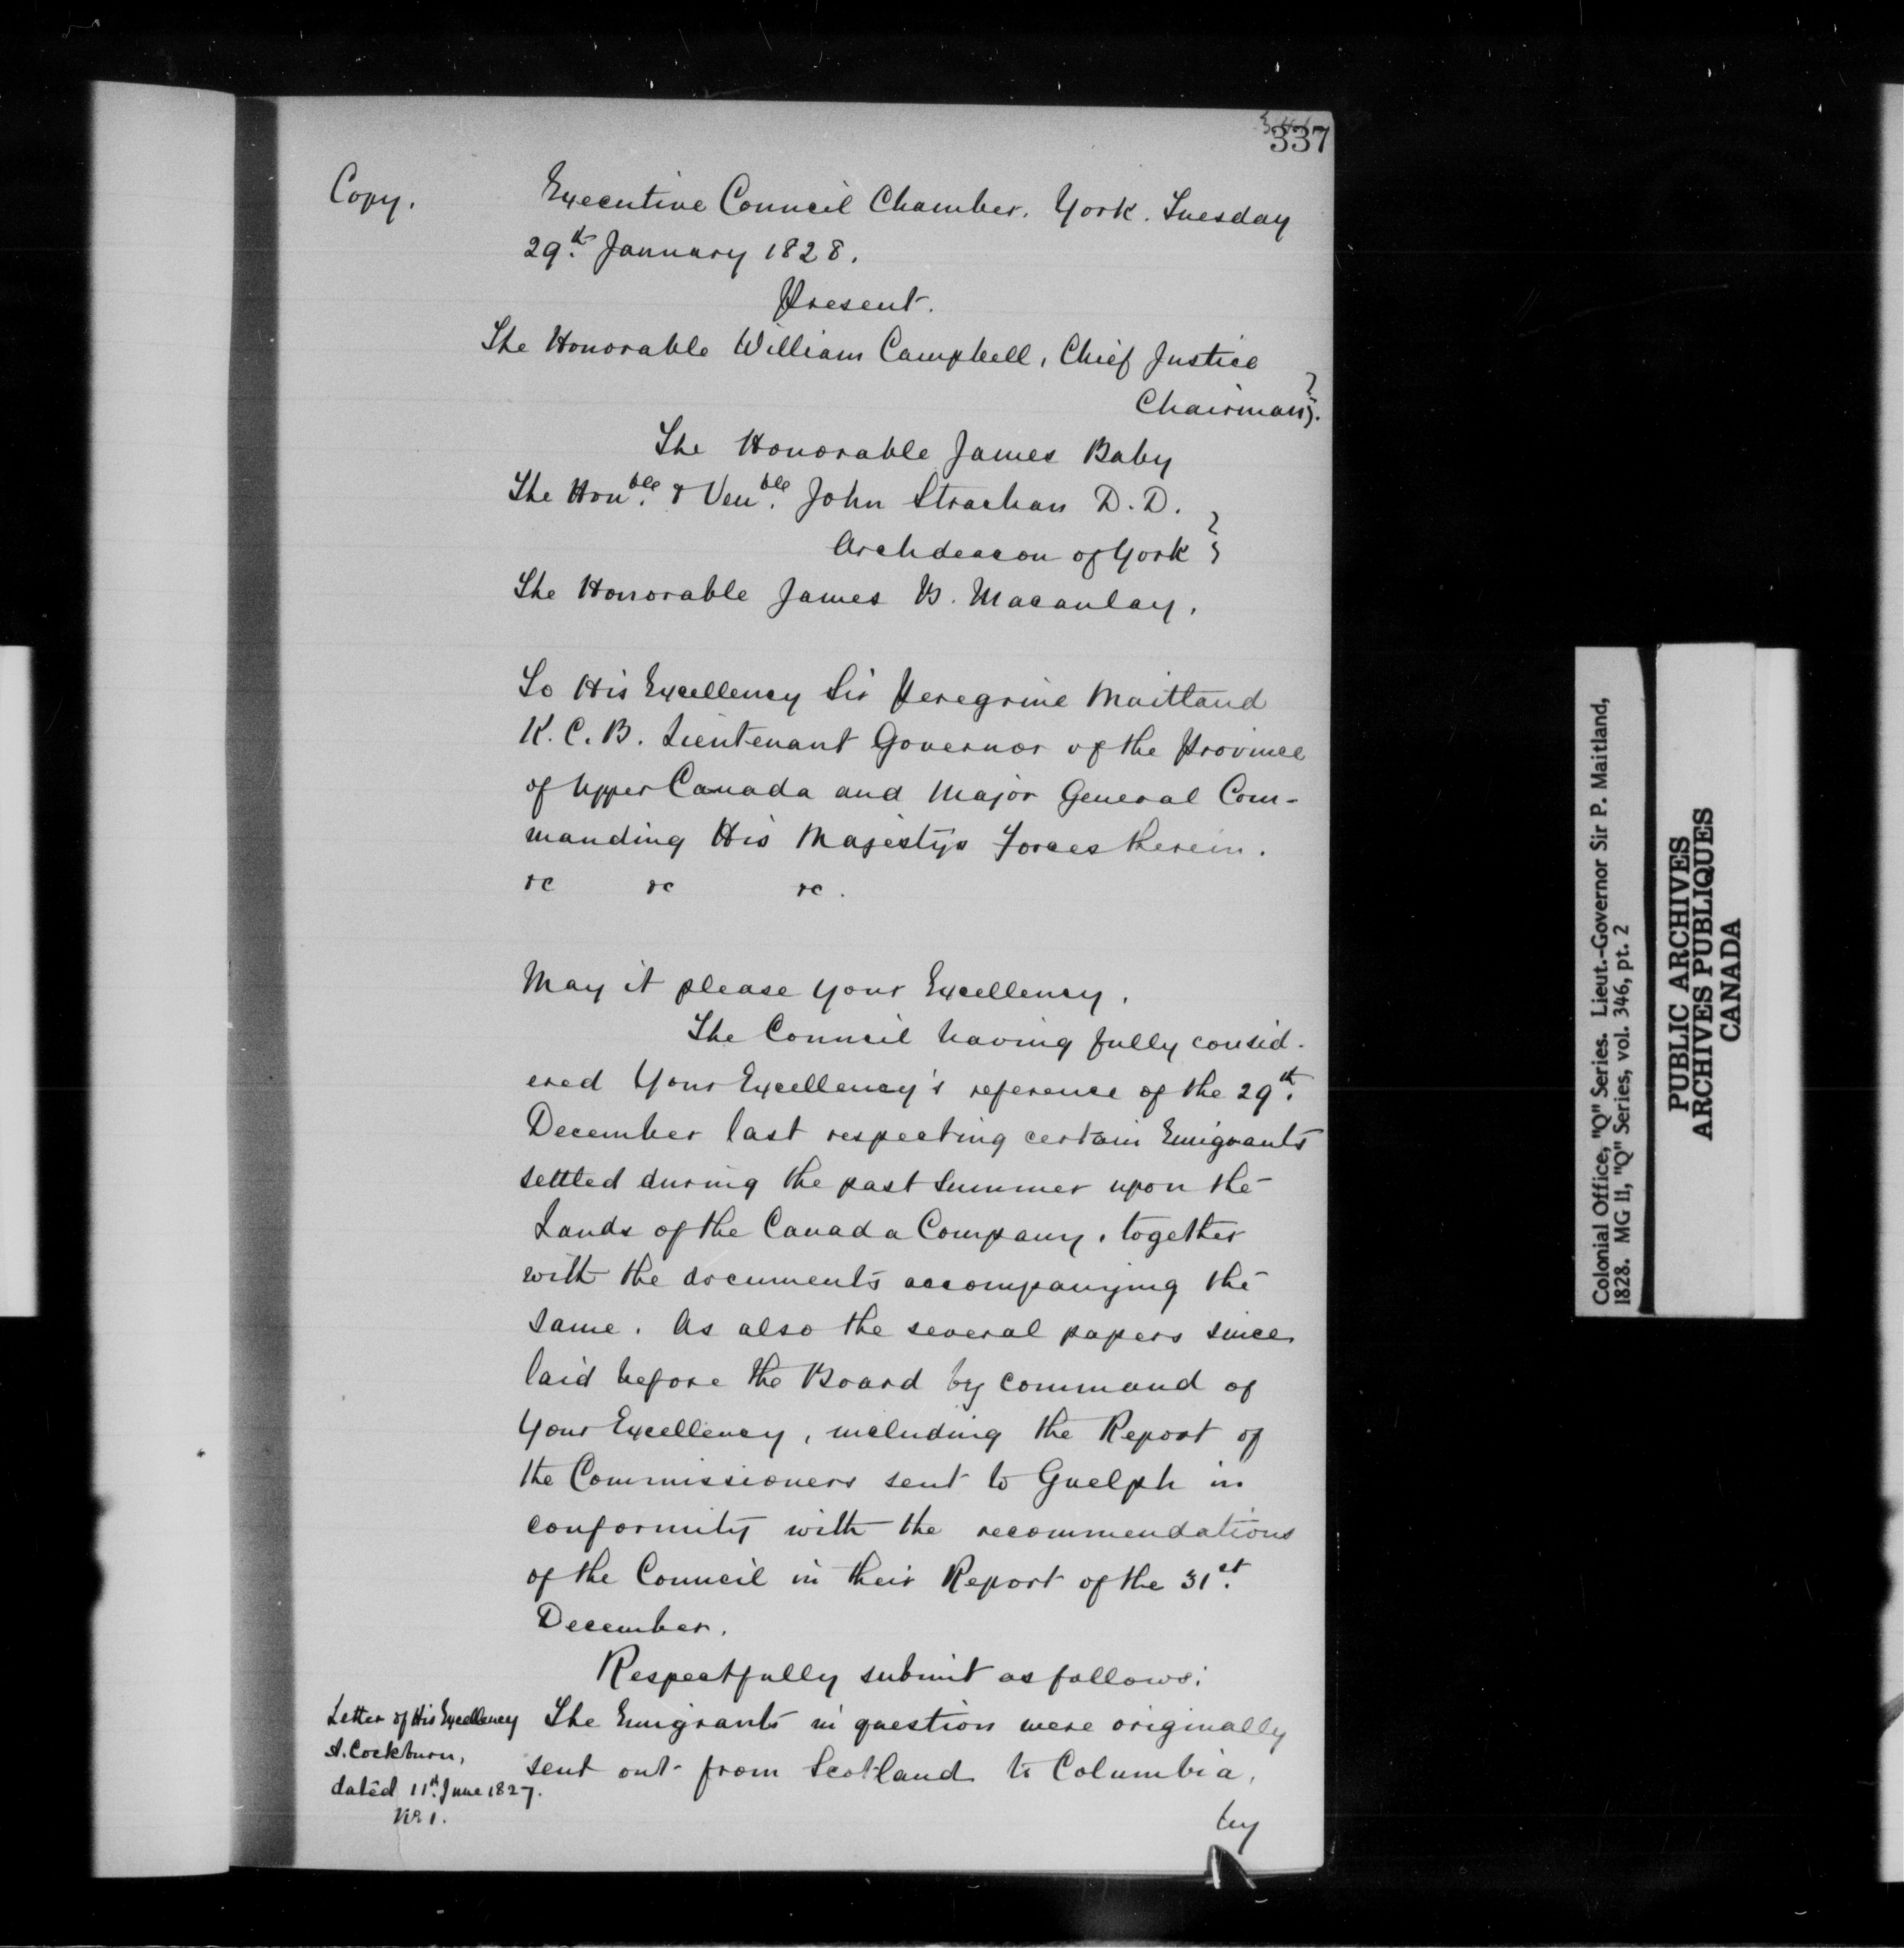 337
Copy.
Executive Council Chamber. York. Tuesday
29th. January 1828.
Present.
The Honorable William Campbell, Chief Justice
Chairman.
The Honorable James Baby
The Honble. & Venble. John Strachan D.D.
Archdeacon of York
The Honorable James B. Macaulay.
To His Excellency Sir Peregrine Maitland
K.C.B. Lieutenant Governor of the Province
of Upper Canada and Major General Com-
manding His Majestys Forces therein.
&c &c &c.
May it please Your Excellency,
The Council having fully consid-
ered Your Excellency's reference of the 29th.
December last respecting certain Emigrants
settled during the past Summer upon the
Lands of the Canada Company, together
with the documents accompanying the
same. As also the several papers since
laid before the Board by command of
Your Excellency, including the Report of
the Commissioners sent to Guelph in
conformity with the recommendations
of the Council in their Report of the 31st.
December.
Respectfully submit as follows:
Letter of His Excellency
A. Cockburn,
dated 11th. June 1827.
No. 1.
The Emigrants in question were originally
sent out from Scotland to Columbia,
by
Colonial Office, "Q" Series. Lieut.-Governor Sir P. Maitland,
1828. MG 11, "Q" Series, vol. 346, pt. 2
PUBLIC ARCHIVES
ARCHIVES PUBLIQUES
CANADA